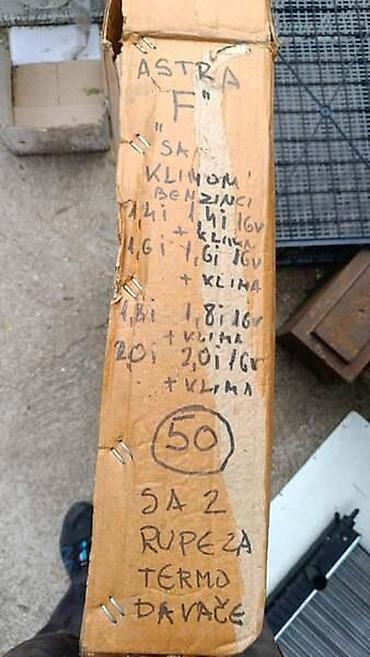 ASTRA
"F"
"SA
KLIMOM"
BENZINCI
1,4i 1,4i 16v
+ KLIMA
1,6i 1,6i 16v
+ KLIMA
1,8i 1,8i 16v
+ KLIMA
2,0i 2,0i 16v
+ KLIMA
50
SA 2
RUPE ZA
TERMO
DAVAČE